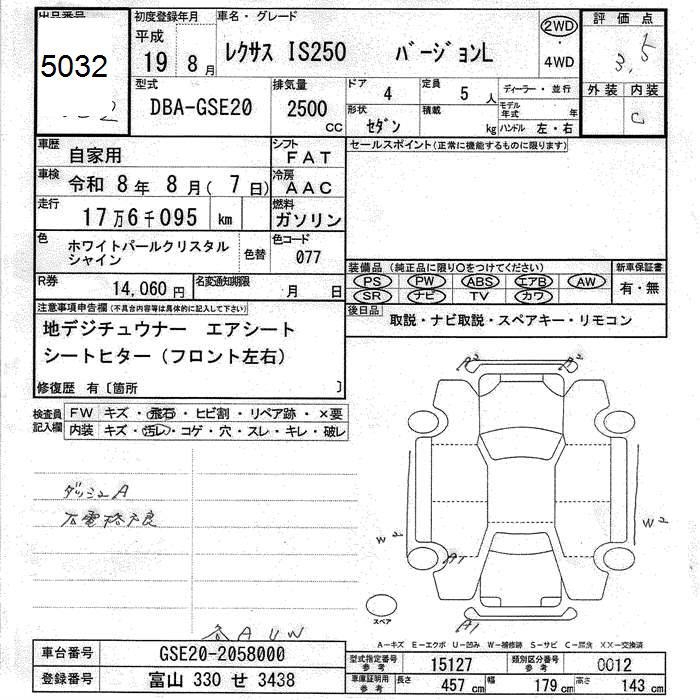 出品番号 初度登録年月 車名・グレード 評価点
5032
平成 19年 8月 レクサス IS250 バージョンL 2WD・4WD 3.5
型式 排気量 ドア 4 定員 5人 ディーラー・並行 外装 内装
DBA-GSE20 2500 cc 形状 セダン 積載 kg モデル年式 年 ハンドル 左・右 C
車歴 自家用 シフト FAT セールスポイント(正常に機能するものに限ります)
車検 令和 8年 8月( 7日) 冷房 AAC
走行 17万6千095 km 燃料 ガソリン
色 ホワイトパールクリスタル 色替 色コード 077
シャイン
装備品 (純正品に限り○をつけてください) 新車保証書
R券 14,060円 名変通知期限 ・月 日 PS PW ABS エアB AW 有・無
SR ナビ TV カワ
注意事項申告欄(不具合内容等は具体的に記入して下さい) 後日品 取説・ナビ取説・スペアキー・リモコン
地デジチュウナー エアシート
シートヒター(フロント左右)
修復歴 有〔箇所 〕
検査員記入欄 FW キズ・飛石・ヒビ割・リペア跡・×要
内装 キズ・汚レ・コゲ・穴・スレ・キレ・破レ
ダッシュA
A1
スペア
A1
各A UW
A-キズ E-エクボ U-凹み W-補修跡 S-サビ C-腐食 XX-交換済
車台番号 GSE20-2058000 型式指定番号 参考 15127 類別区分番号 参考 0012
登録番号 富山 330 せ 3438 車庫証明用 参考 長さ 457 cm 幅 179 cm 高さ 143 cm